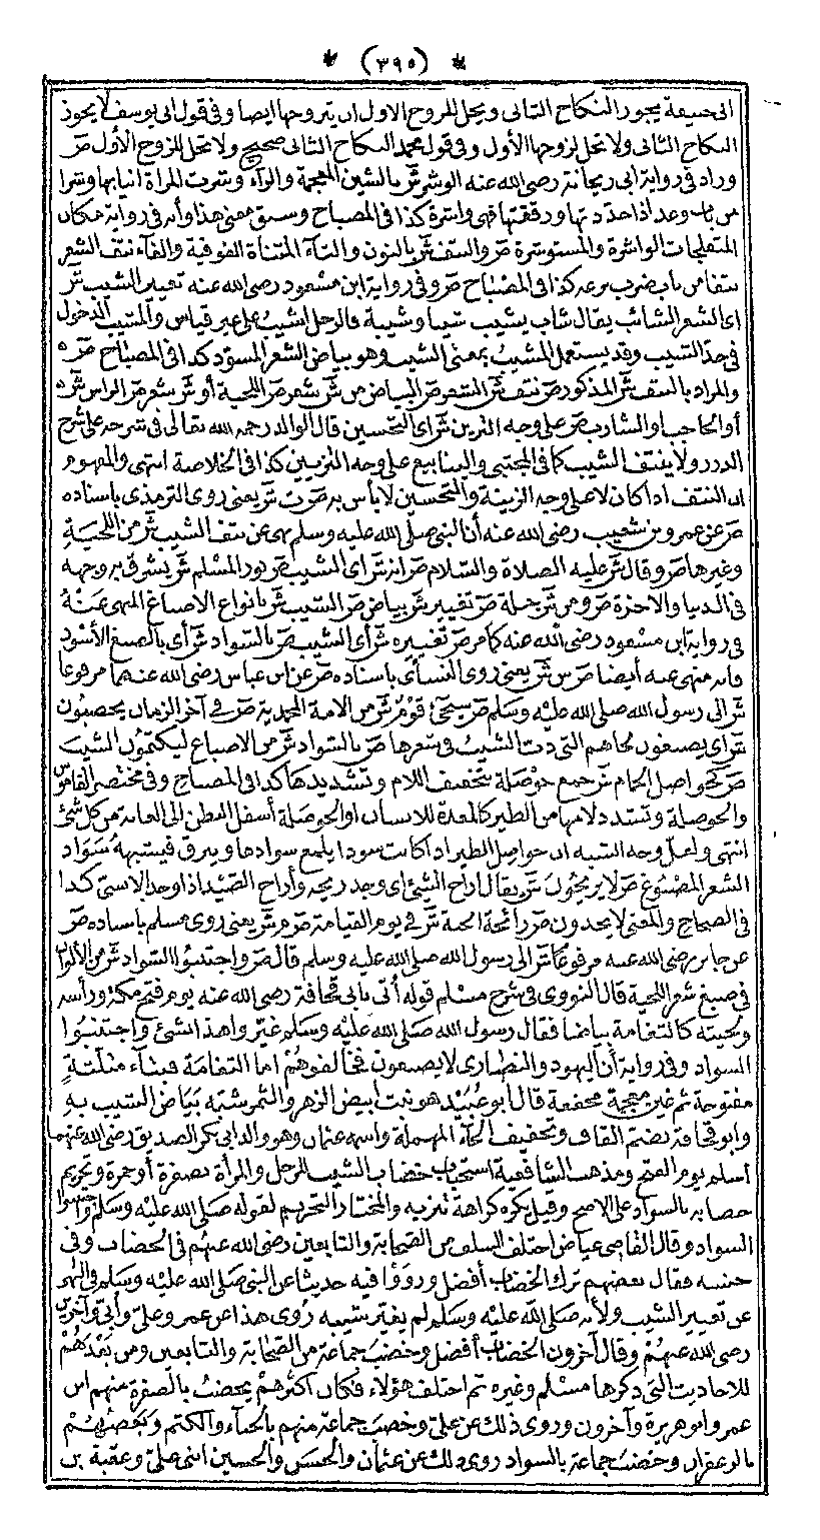 * (٣٩٥) *
ابى حنيفة يجوز النكاح الثانى ويحل للزوج الاول ان يتزوجها ايضا وفى قول ابى يوسف لا يجوز
النكاح الثانى ولا تحل لزوجها الأول وفى قول محمد النكاح الثانى صحيح ولا تحل للزوج الأول ص
وزاد فى رواية ابى ريحانة رضى الله عنه الوشر ش بالشين المعجمة والراء وشرت المرأة انيابها وشرا
من باب وعد اذا حددتها ورققتها فهى واشرة كذا فى المصباح وسبق معنى هذا وأنه فى رواية مكان
المتفلجات الواشرة والمستوشرة ص والنتف ش بالنون والتاء المثناة الفوقية والفاء نتف الشعر
نتفا من باب ضرب نزعه كذا فى المصباح ص وفى رواية ابن مسعود رضى الله عنه تغيير الشيب ش
اى الشعر الشائب يقال شاب يشيب شيبا وشيبة فالرجل اشيب على غير قياس والمشيب الدخول
فى حد الشيب وقد يستعمل المشيب بمعنى الشيب وهو بياض الشعر المسود كذا فى المصباح ص
والمراد بالنتف ش المذكور ص نتف ش الشعر ص البياض من ش شعر ص اللحية أو ش شعر ص الراس ش
أو الحاجب او الشارب ص على وجه التزين ش اى التحسين قال الوالد رحمه الله تعالى فى شرحه على شرح
الدرر ولا ينتف الشيب كما فى المجتبى والينابيع على وجه التزيين كذا فى الخلاصة انتهى والمفهوم
ان النتف اذا كان لا على وجه الزينة والتحسين لا بأس به ص ت ش يعنى روى الترمذى باسناده
ص عن عمرو بن شعيب رضى الله عنه أن النبى صلى الله عليه وسلم نهى عن نتف الشيب ش من اللحية
وغيرها ص وقال ش عليه الصلاة والسلام ص انه ش اى الشيب ص نور المسلم ش يشرق به وجهه
فى الدنيا والاخرة ص ومن ش جملة ص تغيير ش بياض ص الشيب ش بانواع الاصباغ المنهى عنه
فى رواية ابن مسعود رضى الله عنه كما مر ص تغييره ش أى الشيب ص بالسواد ش أى بالصبغ الأسود
فانه منهى عنه أيضا ص س ش يعنى روى النسأى باسناده ص عن ابن عباس رضى الله عنهما مرفوعا
ش الى رسول الله صلى الله عليه وسلم ص سيجئ قوم ش من الامة المحمدية ص فى آخر الزمان يخضبون
ش اى يصبغون لحاهم التى دب الشيب فى شعرها ص بالسواد ش من الاصباغ ليكتمون الشيب
ص كحواصل الحمام ش جمع حوصلة بتخفيف اللام وتشديدها كذا فى المصباح وفى مختصر القاموس
والحوصلة وتشدد لامها من الطير كالمعدة للانسان او الحوصلة أسفل البطن الى العانة من كل شئ
انتهى ولعل وجه الشبه ان حواصل الطير اذا كانت سودا يلمع سوادها ويبرق فيشبهه سواد
الشعر المصبوغ ص لا يريحون ش يقال اراح الشئ اى وجد ريحه وأراح الصيد اذا وجد الانسى كذا
فى الصحاح والمعنى لا يجدون ص رائحة الجنة ش فى يوم القيامة ص م ش يعنى روى مسلم باسناده ص
عن جابر رضى الله عنه مرفوعا ش الى رسول الله صلى الله عليه وسلم قال ص واجتنبوا السواد ش من الألوان
فى صبغ شعر اللحية قال النووى فى شرح مسلم قوله أتى بابى قحافة رضى الله عنه يوم فتح مكة ورأسه
ولحيته كالثغامة بياضا فقال رسول الله صلى الله عليه وسلم غيروا هذا الشئ واجتنبوا
السواد وفى رواية أن اليهود والنصارى لا يصبغون فخالفوهم اما الثغامة فبثاء مثلثة
مفتوحة ثم غين معجمة مخففة قال ابو عبيد هو نبت أبيض الزهر والثمر شبه بياض الشيب به
وابو قحافة بضم القاف وتخفيف الحاء المهملة واسمه عثمان وهو والد ابى بكر الصديق رضى الله عنهما
أسلم يوم الفتح ومذهب الشافعية استحباب خضاب الشيب للرجل والمرأة بصفرة أو حمرة وتحريم
خضابه بالسواد على الاصح وقيل يكره كراهة تنزيه والمختار التحريم لقوله صلى الله عليه وسلم واجتنبوا
السواد وقال القاضى عياض اختلف السلف من الصحابة والتابعين رضى الله عنهم فى الخضاب وفى
جنسه فقال بعضهم ترك الخضاب أفضل ورووا فيه حديثا عن النبى صلى الله عليه وسلم فى النهى
عن تغيير الشيب ولأنه صلى الله عليه وسلم لم يغير شيبه روى هذا عن عمر وعلى وأبى وآخرين
رضى الله عنهم وقال آخرون الخضاب أفضل وخضب جماعة من الصحابة والتابعين ومن بعدهم
للاحاديث التى ذكرها مسلم وغيره ثم اختلف هؤلاء فكان أكثرهم يخضب بالصفرة منهم ابن
عمر وابو هريرة وآخرون وروى ذلك عن على وخضب جماعة منهم بالحناء والكتم وبعضهم
بالزعفران وخضب جماعة بالسواد روى ذلك عن عثمان والحسن والحسين ابنى على وعقبة بن